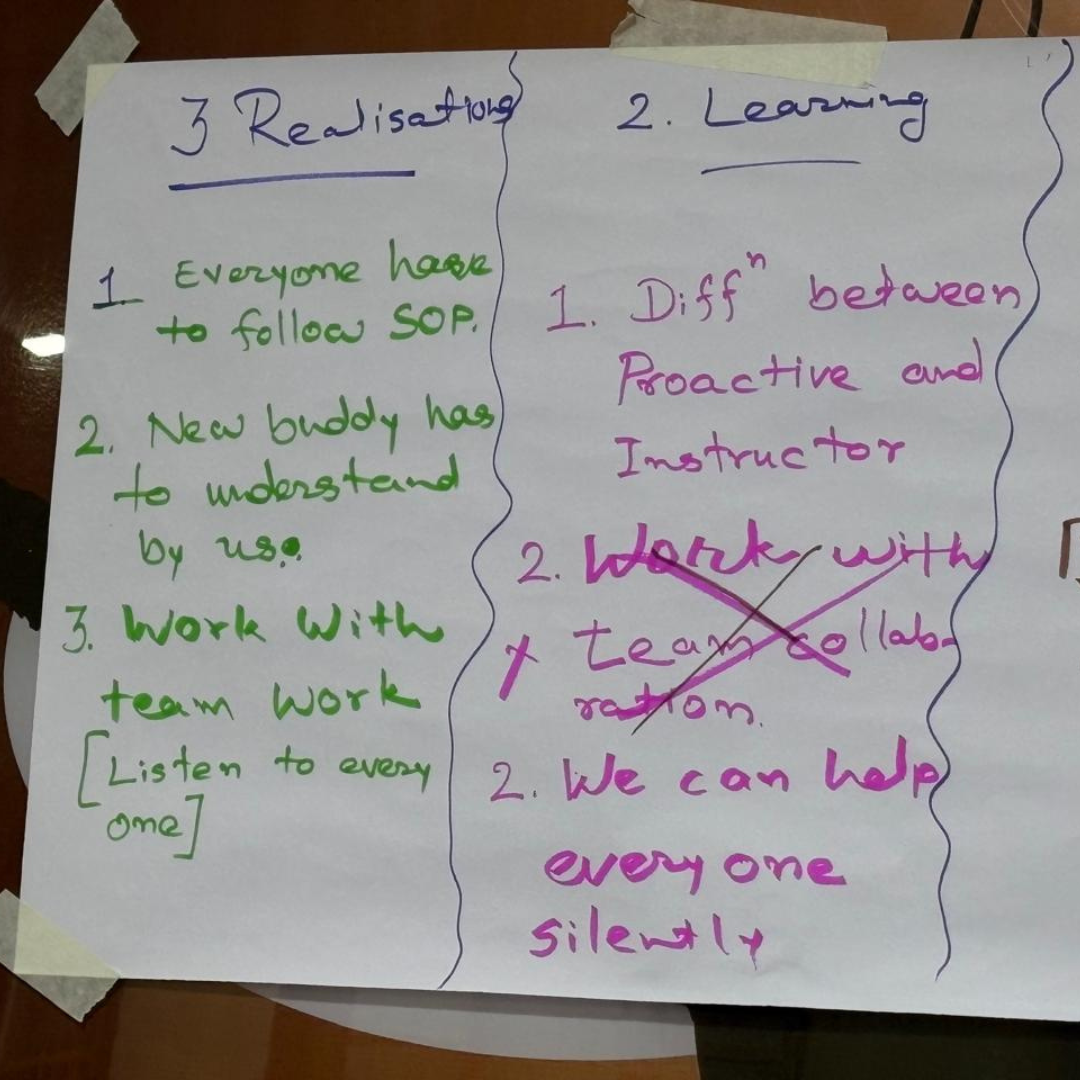 3 Realisations
1. Everyone have
to follow SOP.
2. New buddy has
to understand
by us.
3. Work With
team work
[Listen to every
one]
2. Learning
1. Diffⁿ between
Proactive and
Instructor
2. Work with
x team collab-
ration.
2. We can help
every one
silently